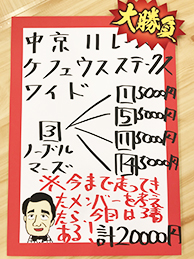 大勝負
中京11レース
ケフェウスステークス
ワイド
1 5000円
5 5000円
3
11 5000円
ノーブル
マーズ
14 5000円
※今まで走ってき
たメンバーを考え
たら、今回は3着
ある!
計20000円